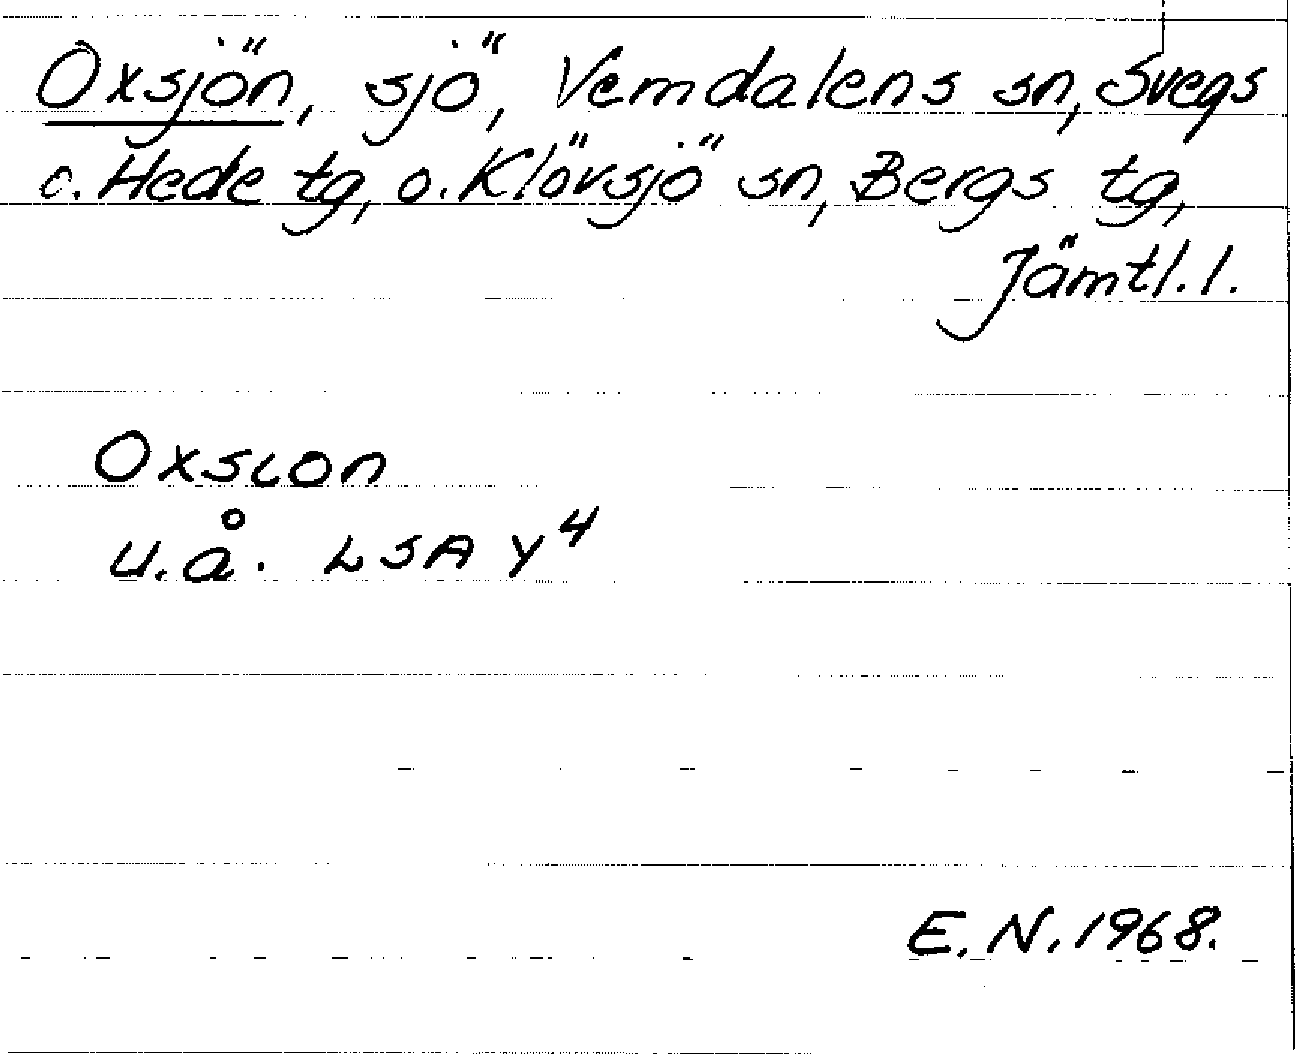 Oxsjön, sjö, Vemdalens sn, Svegs
o. Hede tg, o. Klövsjö sn, Bergs tg,
Jämtl. l.
Oxsion
u.å. LSA Y4
E.N. 1968.